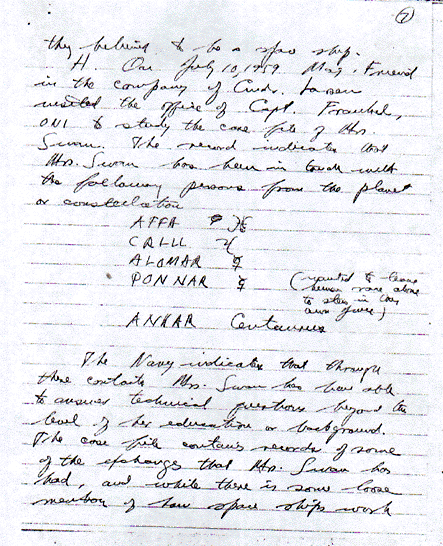 7
they believed to be a space ship.
H. On July 10, 1959 Maj. Friend
in the company of Cmdr. Larsen
visited the office of Capt.
ONI to study the case file of Mrs.
Swan. The record indicates that
Mrs. Swan has been in touch with
the following persons from the planet
or constellation
AFFA ♅
CRLLL ♃
ALOMAR ☿
PONNAR ☿ (wanted to leave
human race alone
to stew in their
own juice)
ANKAR Centaurus
The Navy indicates that through
these contacts Mrs. Swan has been able
to answer technical questions beyond the
level of her education or background.
The case file contains records of some
of the exchanges that Mrs. Swan has
had, and while there is some loose
mention of how space ships work